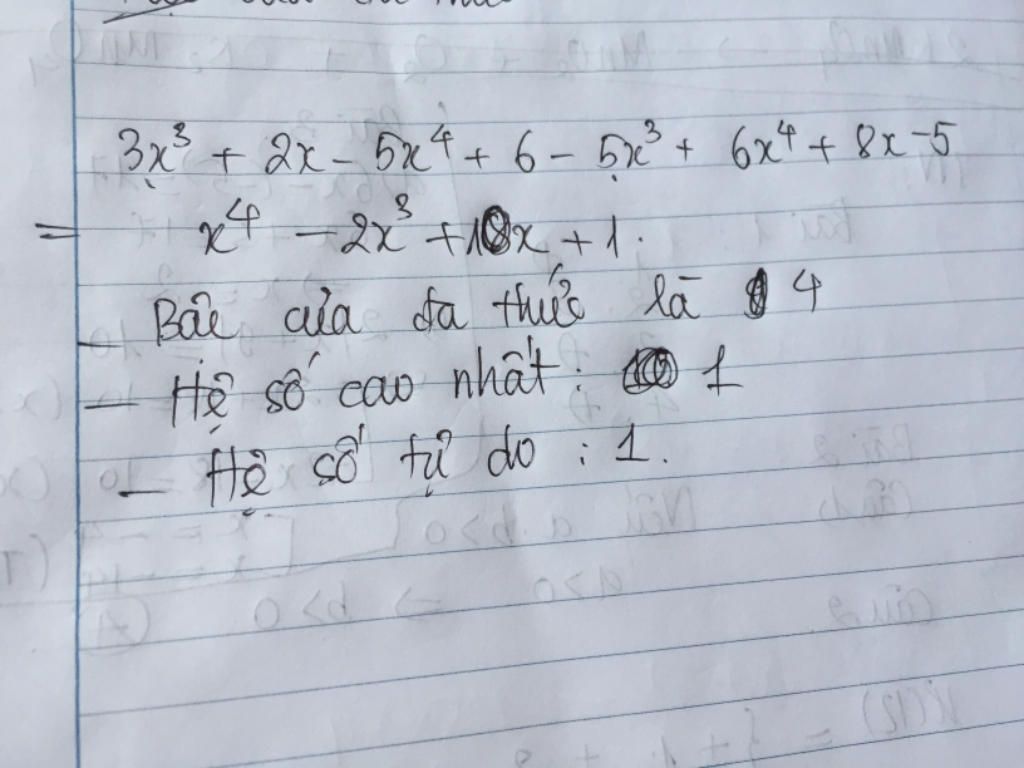 3x³ + 2x - 5x⁴ + 6 - 5x³ + 6x⁴ + 8x - 5
= x⁴ - 2x³ + 10x + 1.
- Bậc của đa thức là 4
- Hệ số cao nhất : 1
- Hệ số tự do : 1.